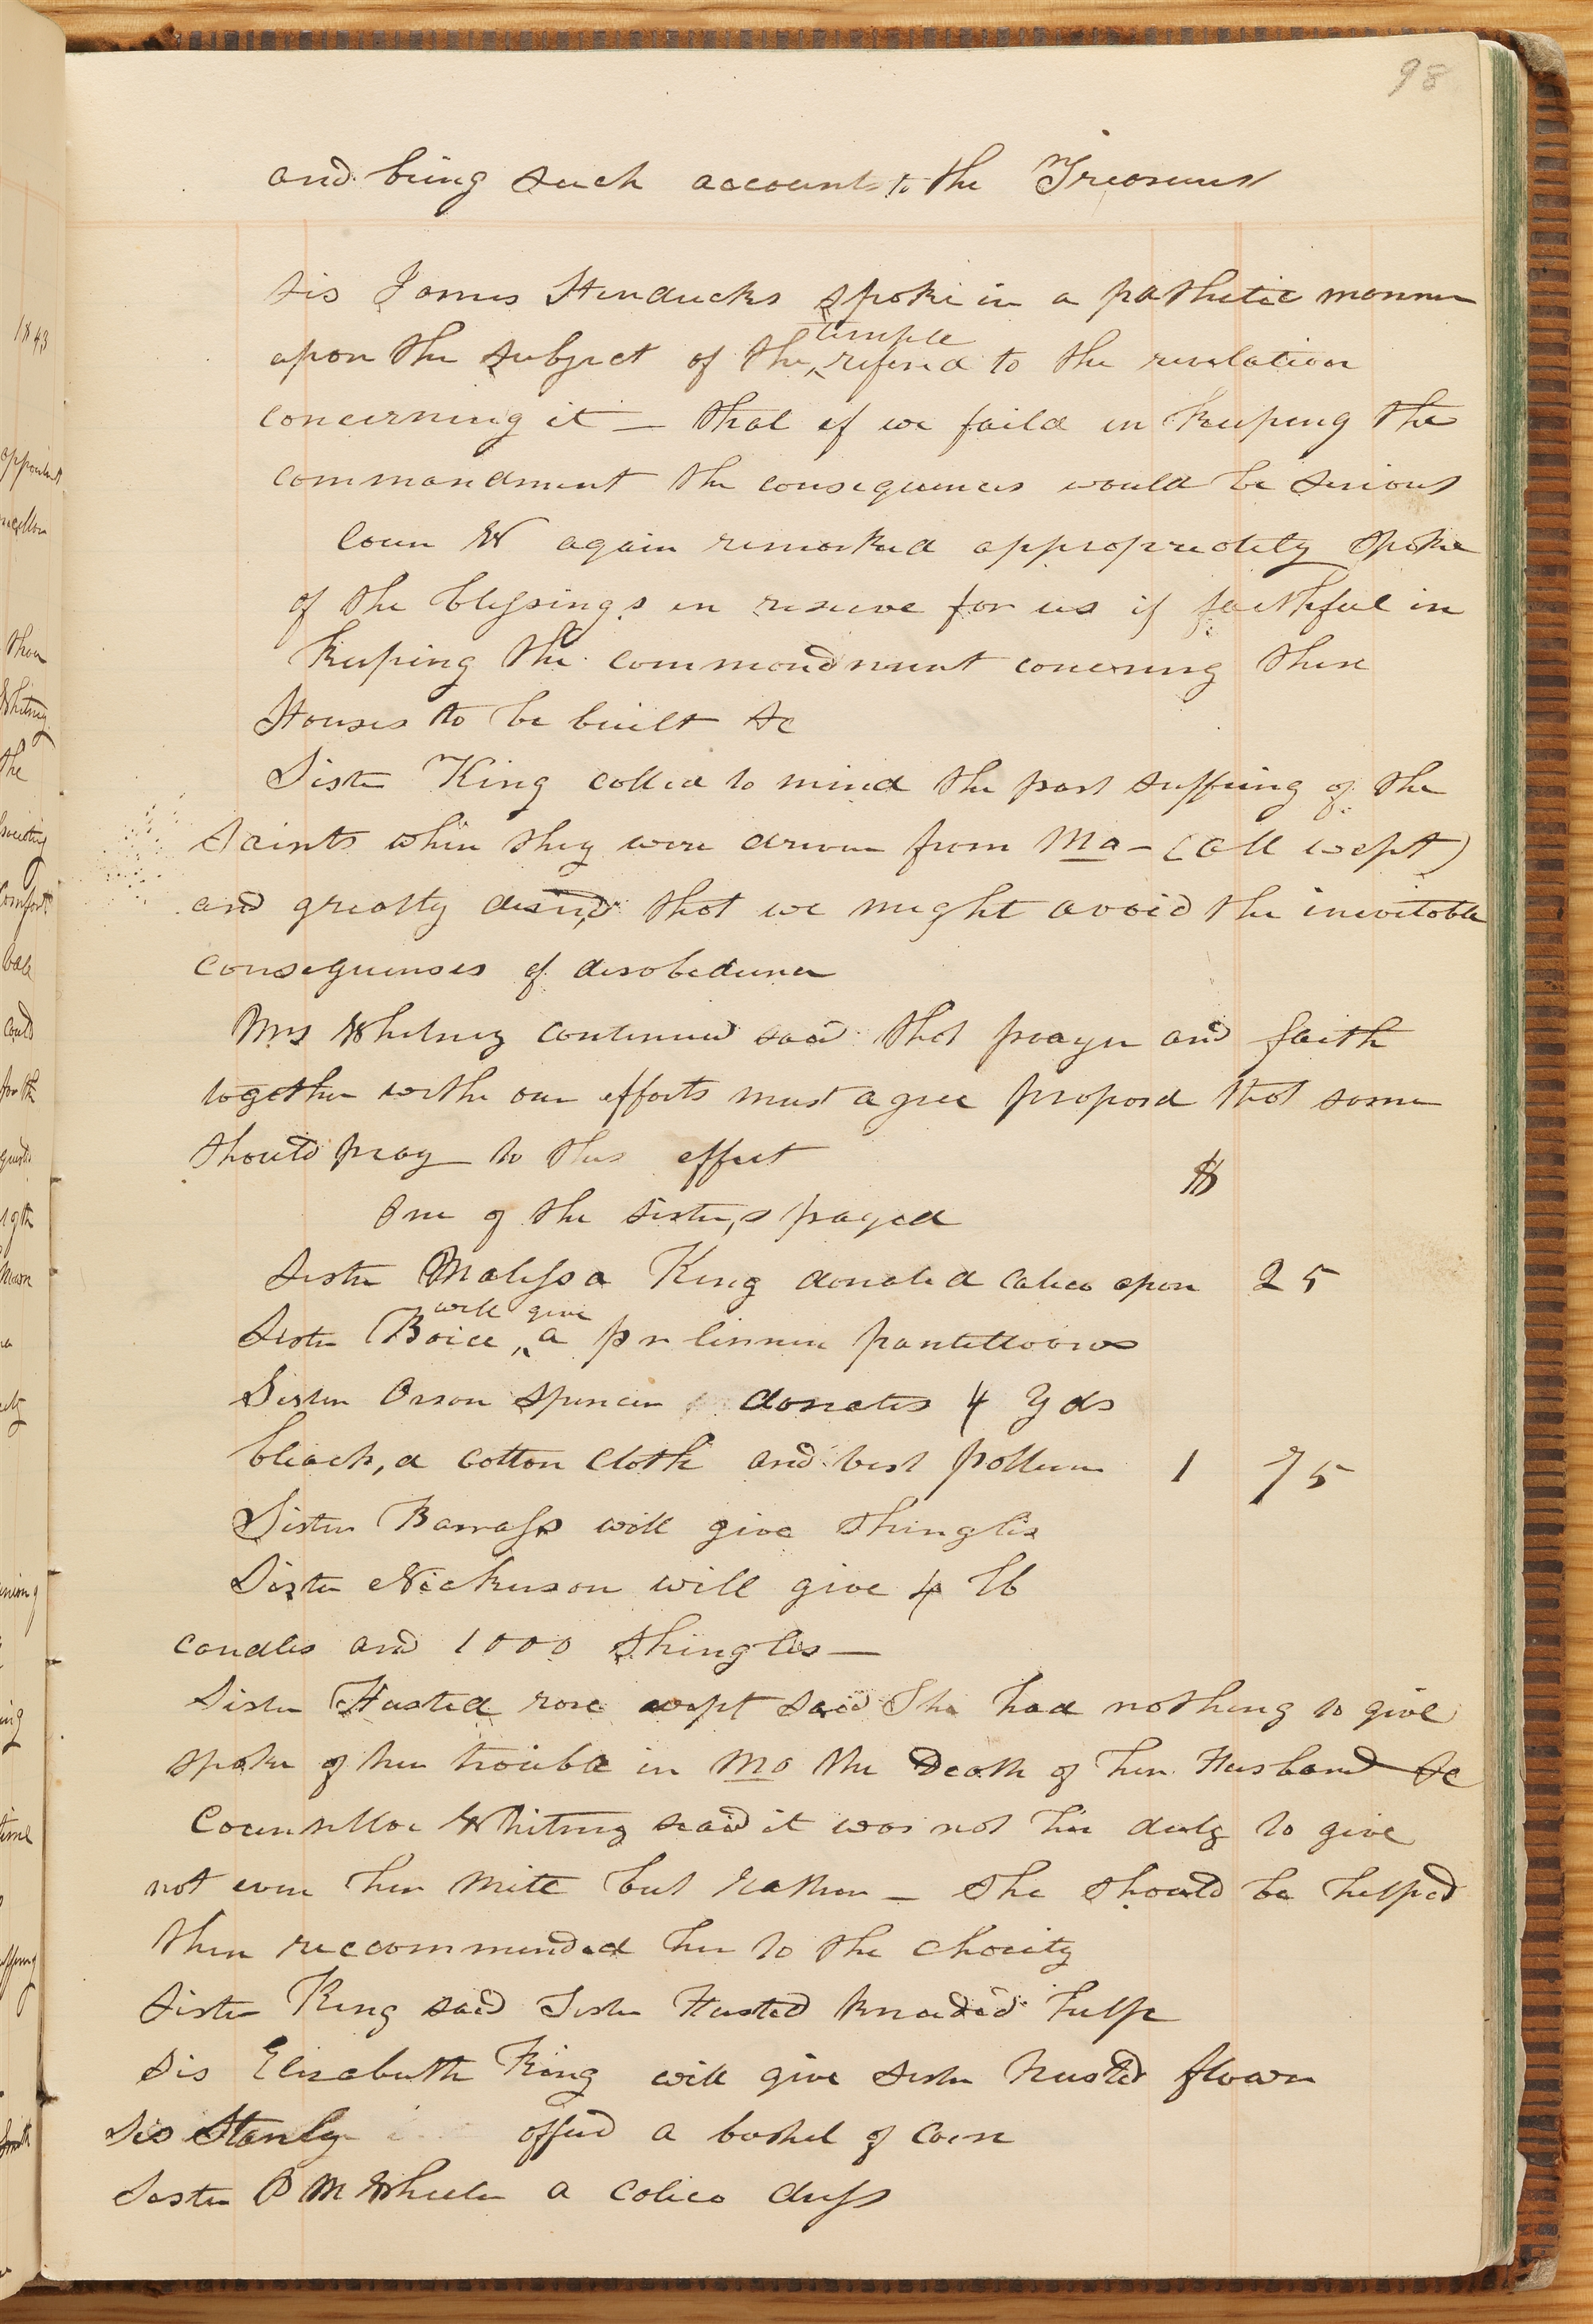 98
and bring such account to the Treasurer
Sis James Hendricks spoke in a pathetic manner
temple
upon the subject of the ^ referred to the revelation
concerning it — that if we faild in keeping the
commandment the consequences would be serious
Coun W again remarked appropriately spoke
of the blessings in reserve for us if faithful in
keeping the commandment concerning these
Houses to be built &c
Sister King called to mind the past suffering of the
Saints when they were driven from Mo — (all wept)
and greatly desired that we might avoid the inevitable
consequenses of disobedience
Mrs Whitney continued said that prayer and faith
together withe our efforts must agree proposd that some
should pray to this effect
$
One of the sisters prayed
Sister Malissa King donated calico apon 25
will give
Sister Boice ^ a pr linnen
Sister Orson Spencer donates 4 yds
bleachd cotton cloth and best 1 75
Sister Barrass will give shingles
Sister Nickerson will give 4 lb
candles and 1000 shingles —
Sister Husted rose wept said She had nothing to give
spoke of her trouble in Mo the Death of her Husband &c
Counsellor Whitney said it was not her duty to give
not even her mite but rather — she should be helped
then reccommended her to the charity
Sister King said Sister Husted kneaded help
Sis Elizabeth King will give sister Husted flower
Sis Stanly offerd a bushel of corn
Sister P M Wheeler a calico dress
1843
than
Whitney
the
comfort
could
for the
time